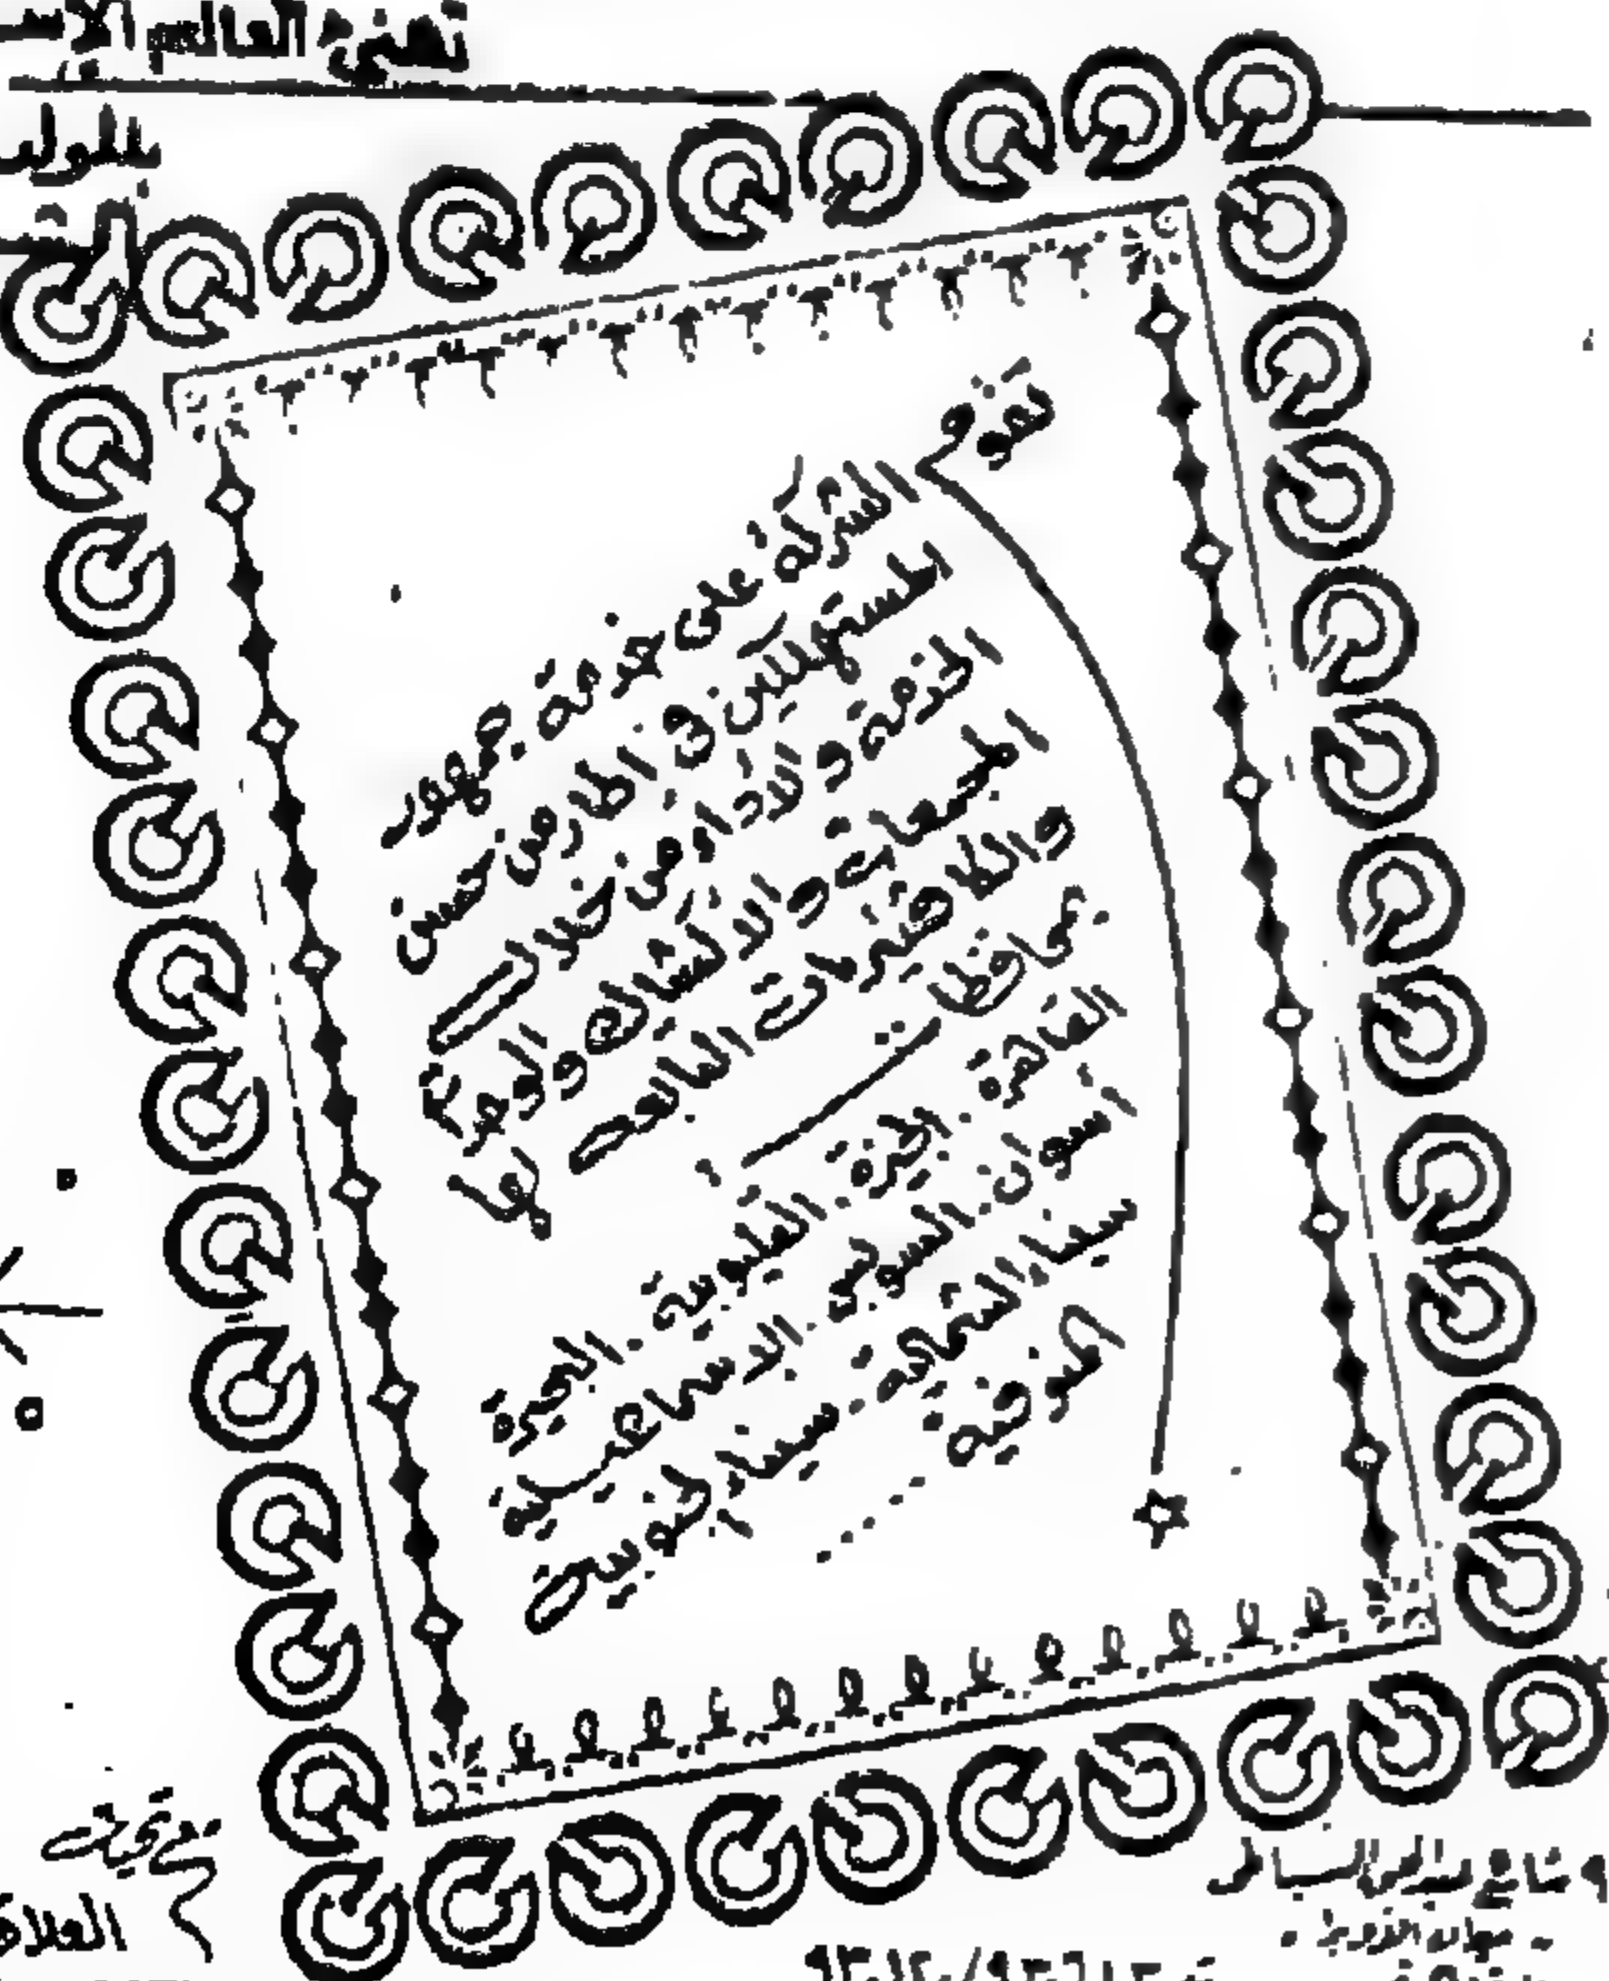 تهنئ العالم الإسـ
بالمولد
تقوم
الشركة على خدمة جمهور
المستهلكين فى اطار من حسن
الخدمة والأداء من خلال
المجمعات والأكشاك والوحدات
والكافتيريات التابعة لها
بمحافظات
القاهرة . الجيزة . القليوبية . البحيرة
أسوان . السويس . الاسماعيلية
سيناء الشمالية . سيناء الجنوبية
المنوفية .....
مع تحيات
العلاقـ
٩ شارع